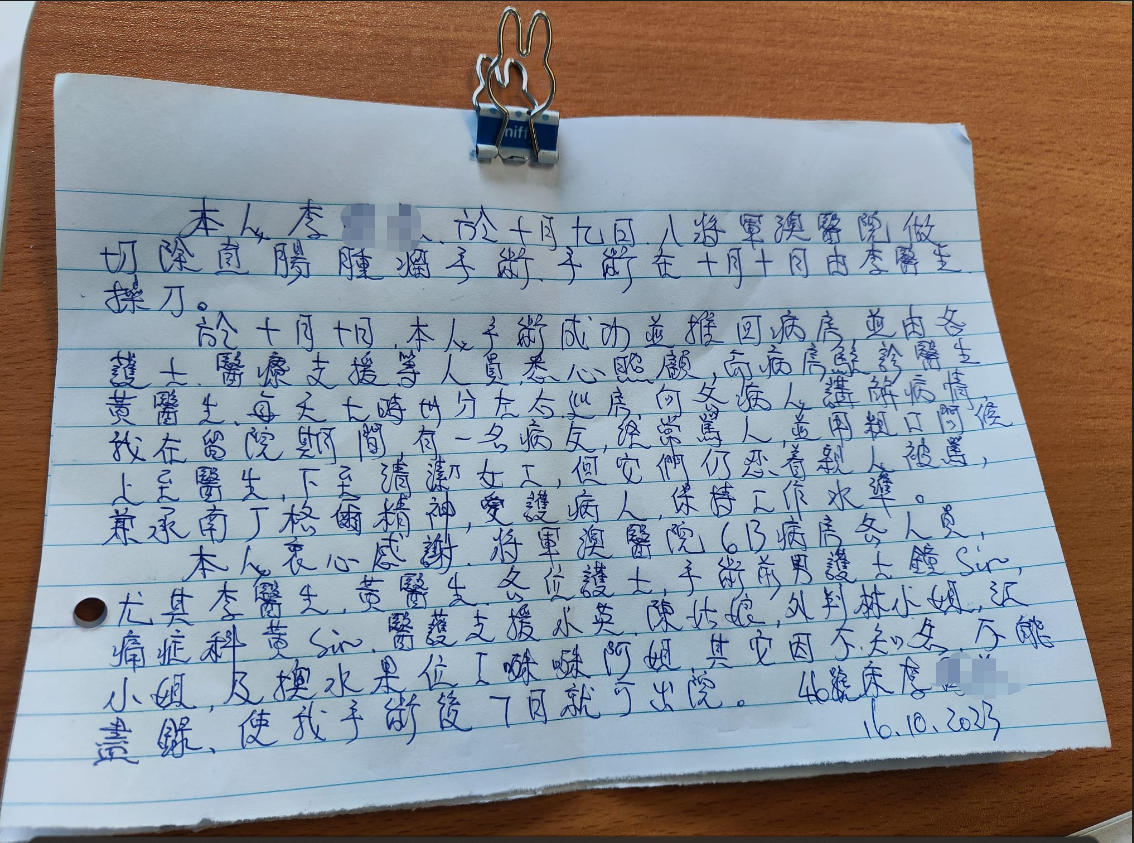 nift
本人李 於十月九日入將軍澳醫院做
切除直腸腫瘤手術.手術在十月十日由李醫生
操刀。
於十月十日.本人手術成功並推回病房並由各
護士.醫療支援等人員悉心照顧,而病房駐診醫生
黃醫生,每天七時卅分左右巡房,向各病人講解病情,
我在留院期間有一名病友,經常罵人,並用粗口問候
上至醫生,下至清潔女工,但它們仍忍着親人被罵,
兼承南丁格爾精神,愛護病人,保持工作水準。
本人衷心感謝.將軍澳醫院6B病房各人員,
尤其李醫生.黃醫生 各位護士,手術前男護士鐘Sir,
痛症科黃Sir.醫護支援水英.陳姑娘,外判林小姐,
小姐,及換水果位工嗽嗽阿姐,其它因不知名,不能
盡錄、使我手術後7日就可出院。 46號床李
16.10.2023